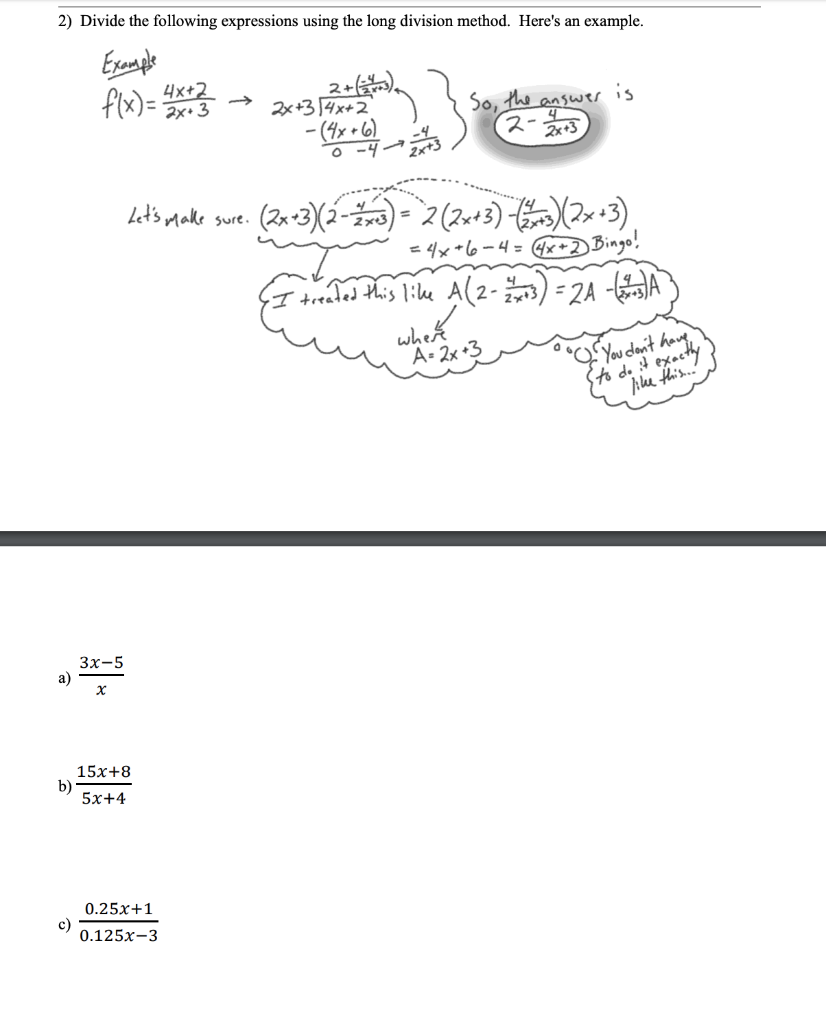 2) Divide the following expressions using the long division method. Here's an example.
Example
f(x)= (4x+2)/(2x+3) → 2x+3 | 4x+2
2+(-4/(2x+3))
-(4x+6)
0 -4 → -4/(2x+3)
So, the answer is
2 - 4/(2x+3)
Let's make sure. (2x+3)(2 - 4/(2x+3)) = 2(2x+3) - (4/(2x+3))(2x+3)
= 4x+6-4 = 4x+2 Bingo!
I treated this like A(2 - 4/(2x+3)) = 2A - (4/(2x+3))A
where
A = 2x+3
You don't have
to do it exactly
like this...
a) (3x−5)/x
b) (15x+8)/(5x+4)
c) (0.25x+1)/(0.125x−3)